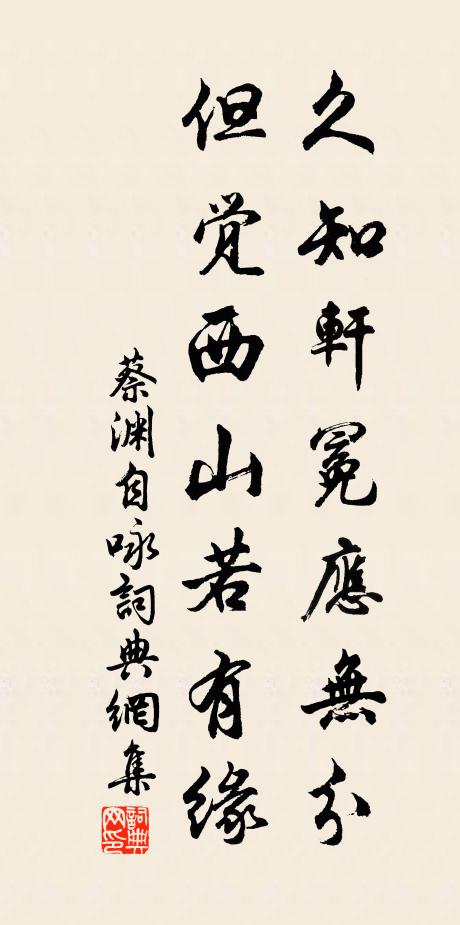 久知軒冕應無分
但觉西山若有緣
蔡渊自咏詞典網集
詞典网印